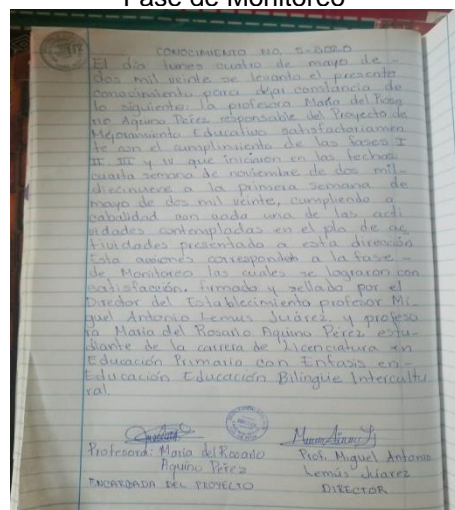 Fase de Monitoreo
CONOCIMIENTO NO. 5-2020
El día lunes cuatro de mayo de -
dos mil veinte se levanta el presente
conocimiento para dejar constancia de
lo siguiente: la profesora María del Rosa
rio Aquino Pérez responsable del Proyecto de
Mejoramiento Educativo satisfactoriamen
te con el cumplimiento de las fases I
II. III y IV que iniciaron en las fechas
cuarta semana de noviembre de dos mil-
diecinueve a la primera semana de
mayo de dos mil veinte, cumpliendo a
cabalidad con cada una de las acti
vidades contempladas en el pla de ac
tividades presentado a esta dirección
Esta acciones corresponden a la fase -
de Monitoreo las cuales se lograron con
satisfacción. firmado y sellado por el
Director del Establecimiento profesor Mi
guel Antonio Lemus Juárez y profeso
ra María del Rosario Aquino Pérez estu
diante de la carrera de Licenciatura en
Educación Primaria con Enfasis en -
Educación Educación Bilingüe Intercultu
ral.
Profesora: María del Rosario
Aquino Pérez
ENCARGADA DEL PROYECTO
Prof. Miguel Antonio
Lemus Juárez
DIRECTOR